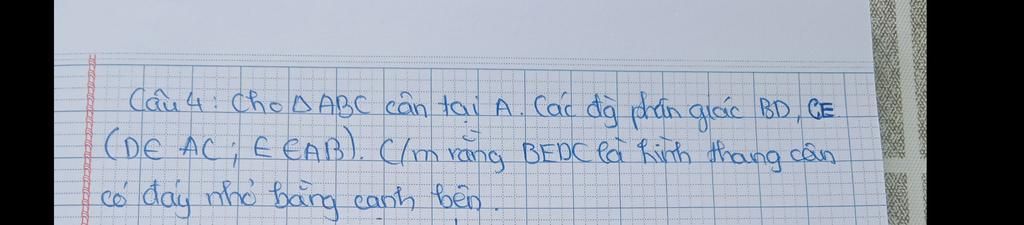 Câu 4: Cho △ABC cân tại A. Các đg phân giác BD, CE
(D∈ AC; E∈AB). C/m rằng BEDC là hình thang cân
có đáy nhỏ bằng cạnh bên.